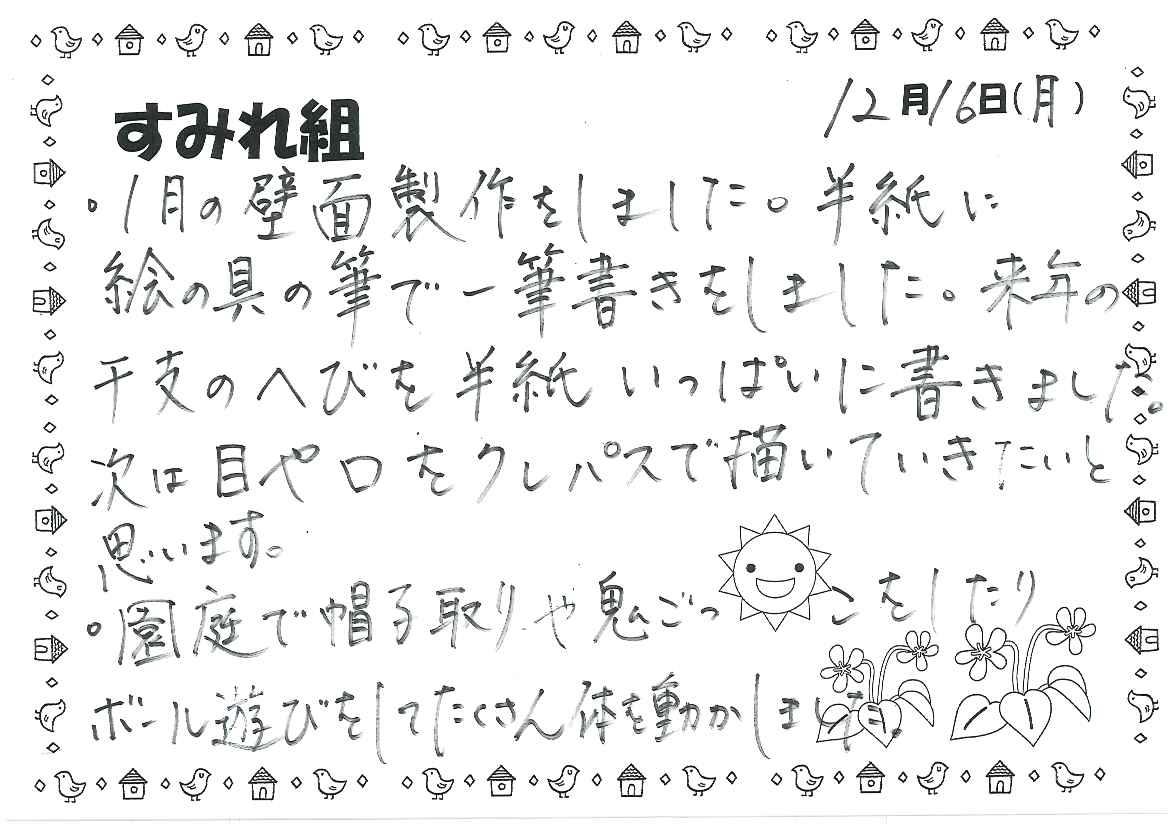 すみれ組
12月16日(月)
。1月の壁面製作をしました。半紙に
絵の具の筆で一筆書きをしました。来年の
干支のへびを半紙いっぱいに書きました。
次は目や口をクレパスで描いていきたいと
思います。
。園庭で帽子取りや鬼ごっこをしたり
ボール遊びをしてたくさん体を動かしました。